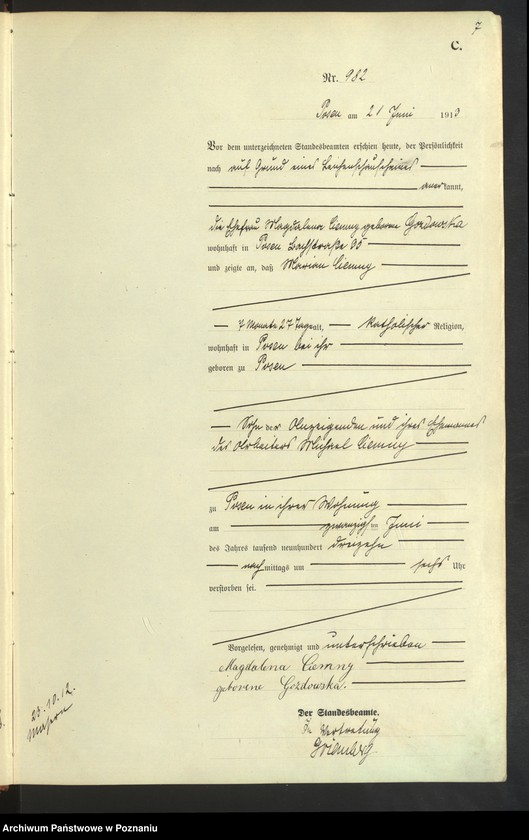 7
C.
Nr. 982
Posen am 21 Juni 1913
Vor dem unterzeichneten Standesbeamten erschien heute, der Persönlichkeit
nach auf Grund eines Leichenschauscheines
anerkannt,
die Ehefrau Magdalena Ciemny geborene Gozdowska
wohnhaft in Posen Bachstraße
und zeigte an, daß Marian Ciemny
7 Monate 27 Tage alt, katholischer Religion,
wohnhaft in Posen bei ihr
geboren zu Posen
Sohn der Anzeigenden und ihres Ehemannes
des Arbeiters Michael Ciemny
zu Posen in ihrer Wohnung
am zwanzigsten Juni
des Jahres tausend neunhundert dreizehn
nachmittags um sechs Uhr
verstorben sei.
Vorgelesen, genehmigt und unterschrieben
Magdalena Ciemny
geborene Gozdowska.
Der Standesbeamte.
In Vertretung
23.10.12.
Archiwum Państwowe w Poznaniu